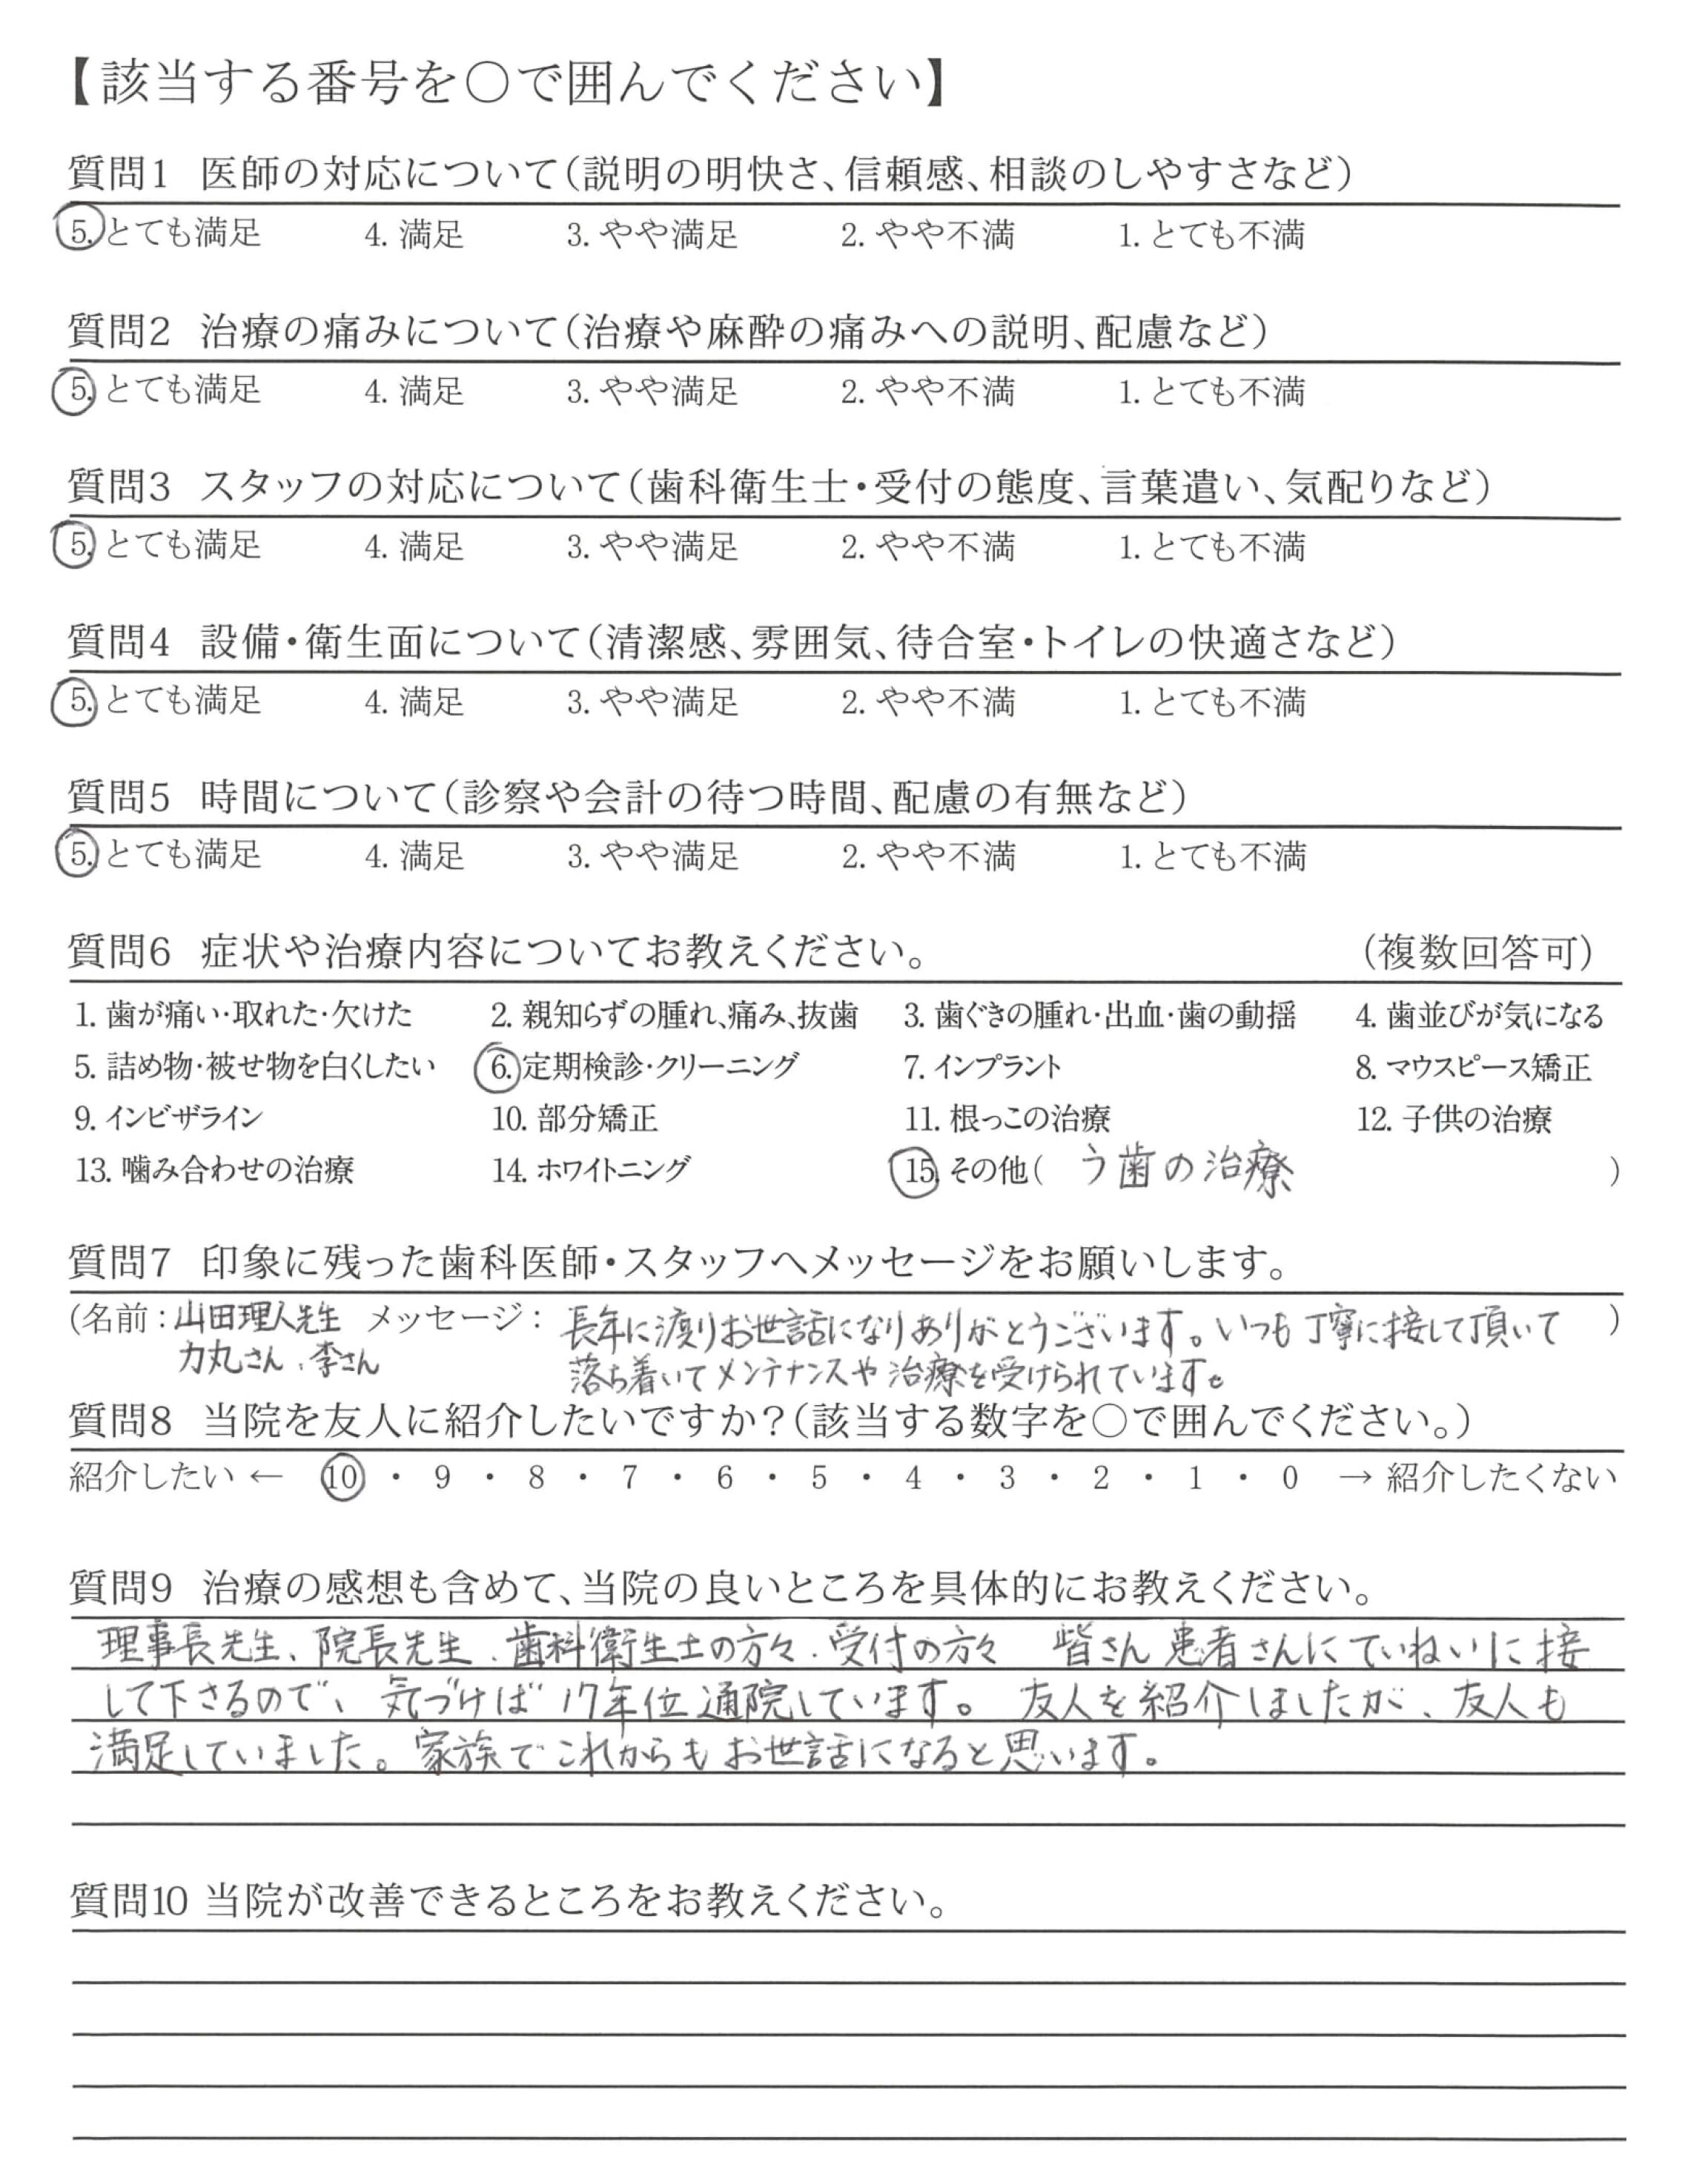 【該当する番号を〇で囲んでください】
質問1 医師の対応について（説明の明快さ、信頼感、相談のしやすさなど）
5. とても満足 4. 満足 3. やや満足 2. やや不満 1. とても不満
質問2 治療の痛みについて（治療や麻酔の痛みへの説明、配慮など）
5. とても満足 4. 満足 3. やや満足 2. やや不満 1. とても不満
質問3 スタッフの対応について（歯科衛生士・受付の態度、言葉遣い、気配りなど）
5. とても満足 4. 満足 3. やや満足 2. やや不満 1. とても不満
質問4 設備・衛生面について（清潔感、雰囲気、待合室・トイレの快適さなど）
5. とても満足 4. 満足 3. やや満足 2. やや不満 1. とても不満
質問5 時間について（診察や会計の待つ時間、配慮の有無など）
5. とても満足 4. 満足 3. やや満足 2. やや不満 1. とても不満
質問6 症状や治療内容についてお教えください。 （複数回答可）
1. 歯が痛い・取れた・欠けた 2. 親知らずの腫れ、痛み、抜歯 3. 歯ぐきの腫れ・出血・歯の動揺 4. 歯並びが気になる
5. 詰め物・被せ物を白くしたい 6. 定期検診・クリーニング 7. インプラント 8. マウスピース矯正
9. インビザライン 10. 部分矯正 11. 根っこの治療 12. 子供の治療
13. 噛み合わせの治療 14. ホワイトニング 15. その他（ う歯の治療 ）
質問7 印象に残った歯科医師・スタッフへメッセージをお願いします。
（名前：山田理人先生 メッセージ： 長年に渡りお世話になりありがとうございます。いつも丁寧に接して頂いて ）
力丸さん、李さん 落ち着いてメンテナンスや治療を受けられています。
質問8 当院を友人に紹介したいですか？（該当する数字を〇で囲んでください。）
紹介したい ← 10 ・ 9 ・ 8 ・ 7 ・ 6 ・ 5 ・ 4 ・ 3 ・ 2 ・ 1 ・ 0 → 紹介したくない
質問9 治療の感想も含めて、当院の良いところを具体的にお教えください。
理事長先生、院長先生、歯科衛生士の方々、受付の方々 皆さん患者さんにていねいに接
して下さるので、気づけば17年位通院しています。友人を紹介しましたが、友人も
満足していました。家族でこれからもお世話になると思います。
質問10 当院が改善できるところをお教えください。